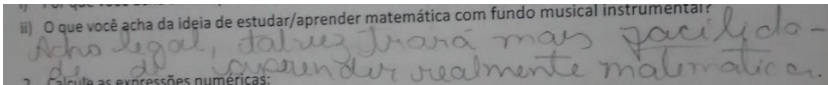 ii) O que você acha da ideia de estudar/aprender matemática com fundo musical instrumental?
Acho legal, talvez trará mais facilida-
de de aprender realmente matematica.
2. Calcule as expressões numéricas: